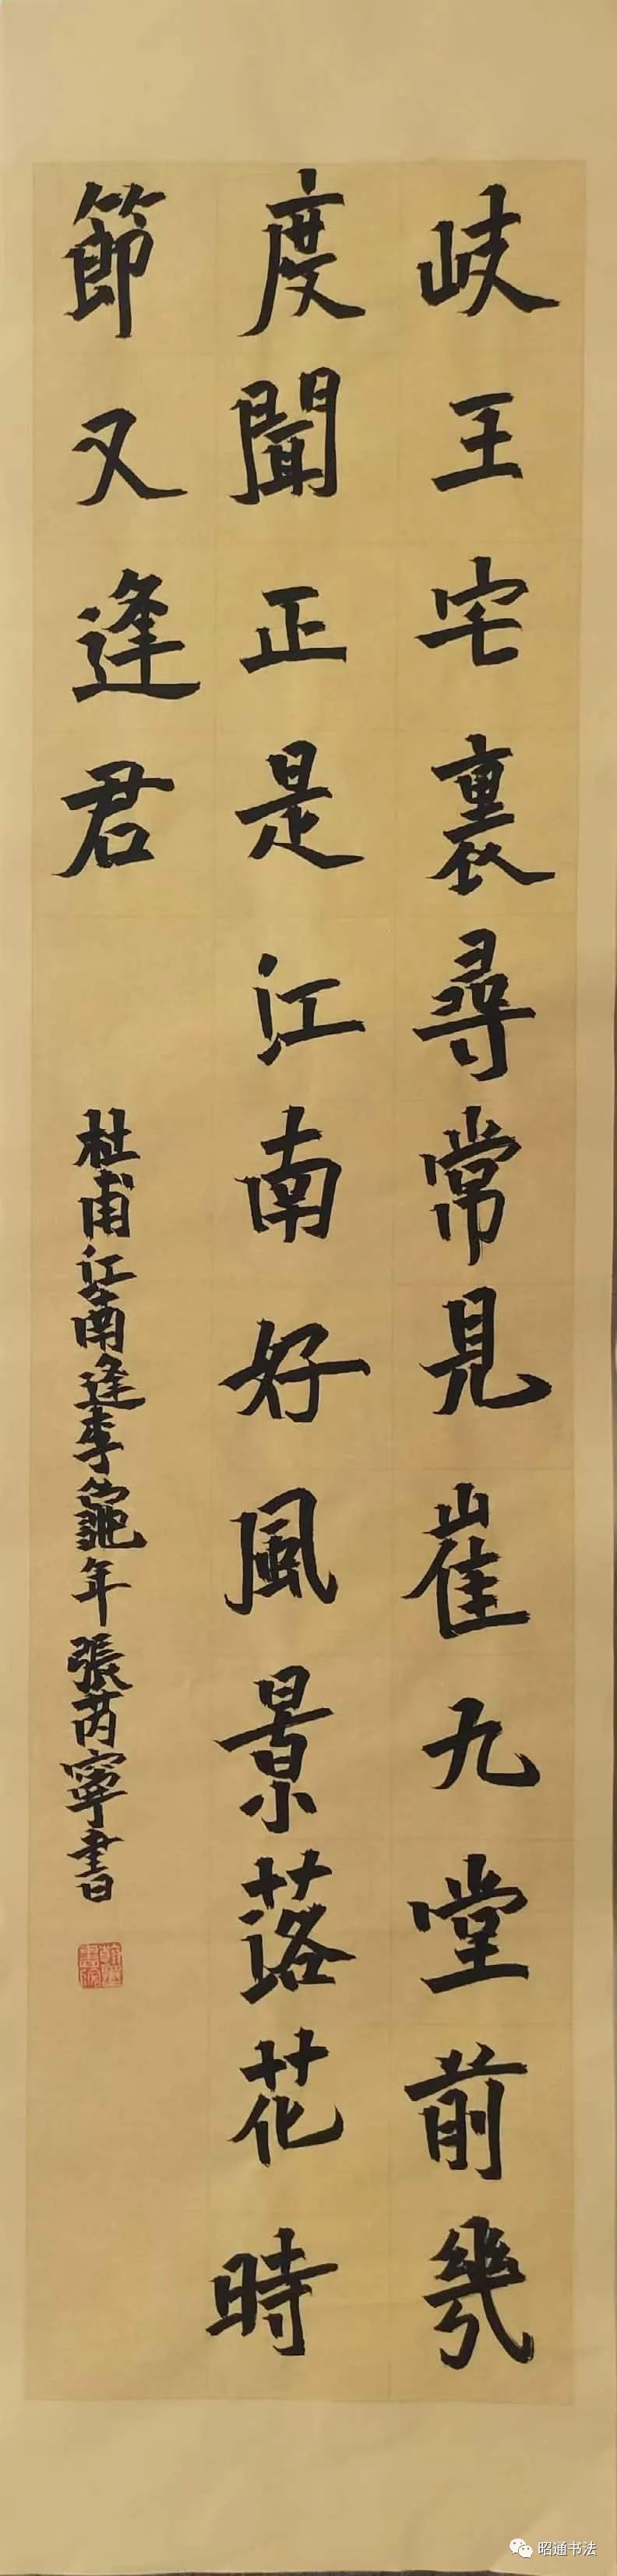 岐王宅裏尋常見崔九堂前幾
度聞正是江南好風景落花時
節又逢君
杜甫江南逢李龜年 張芮寧書
昭通书法